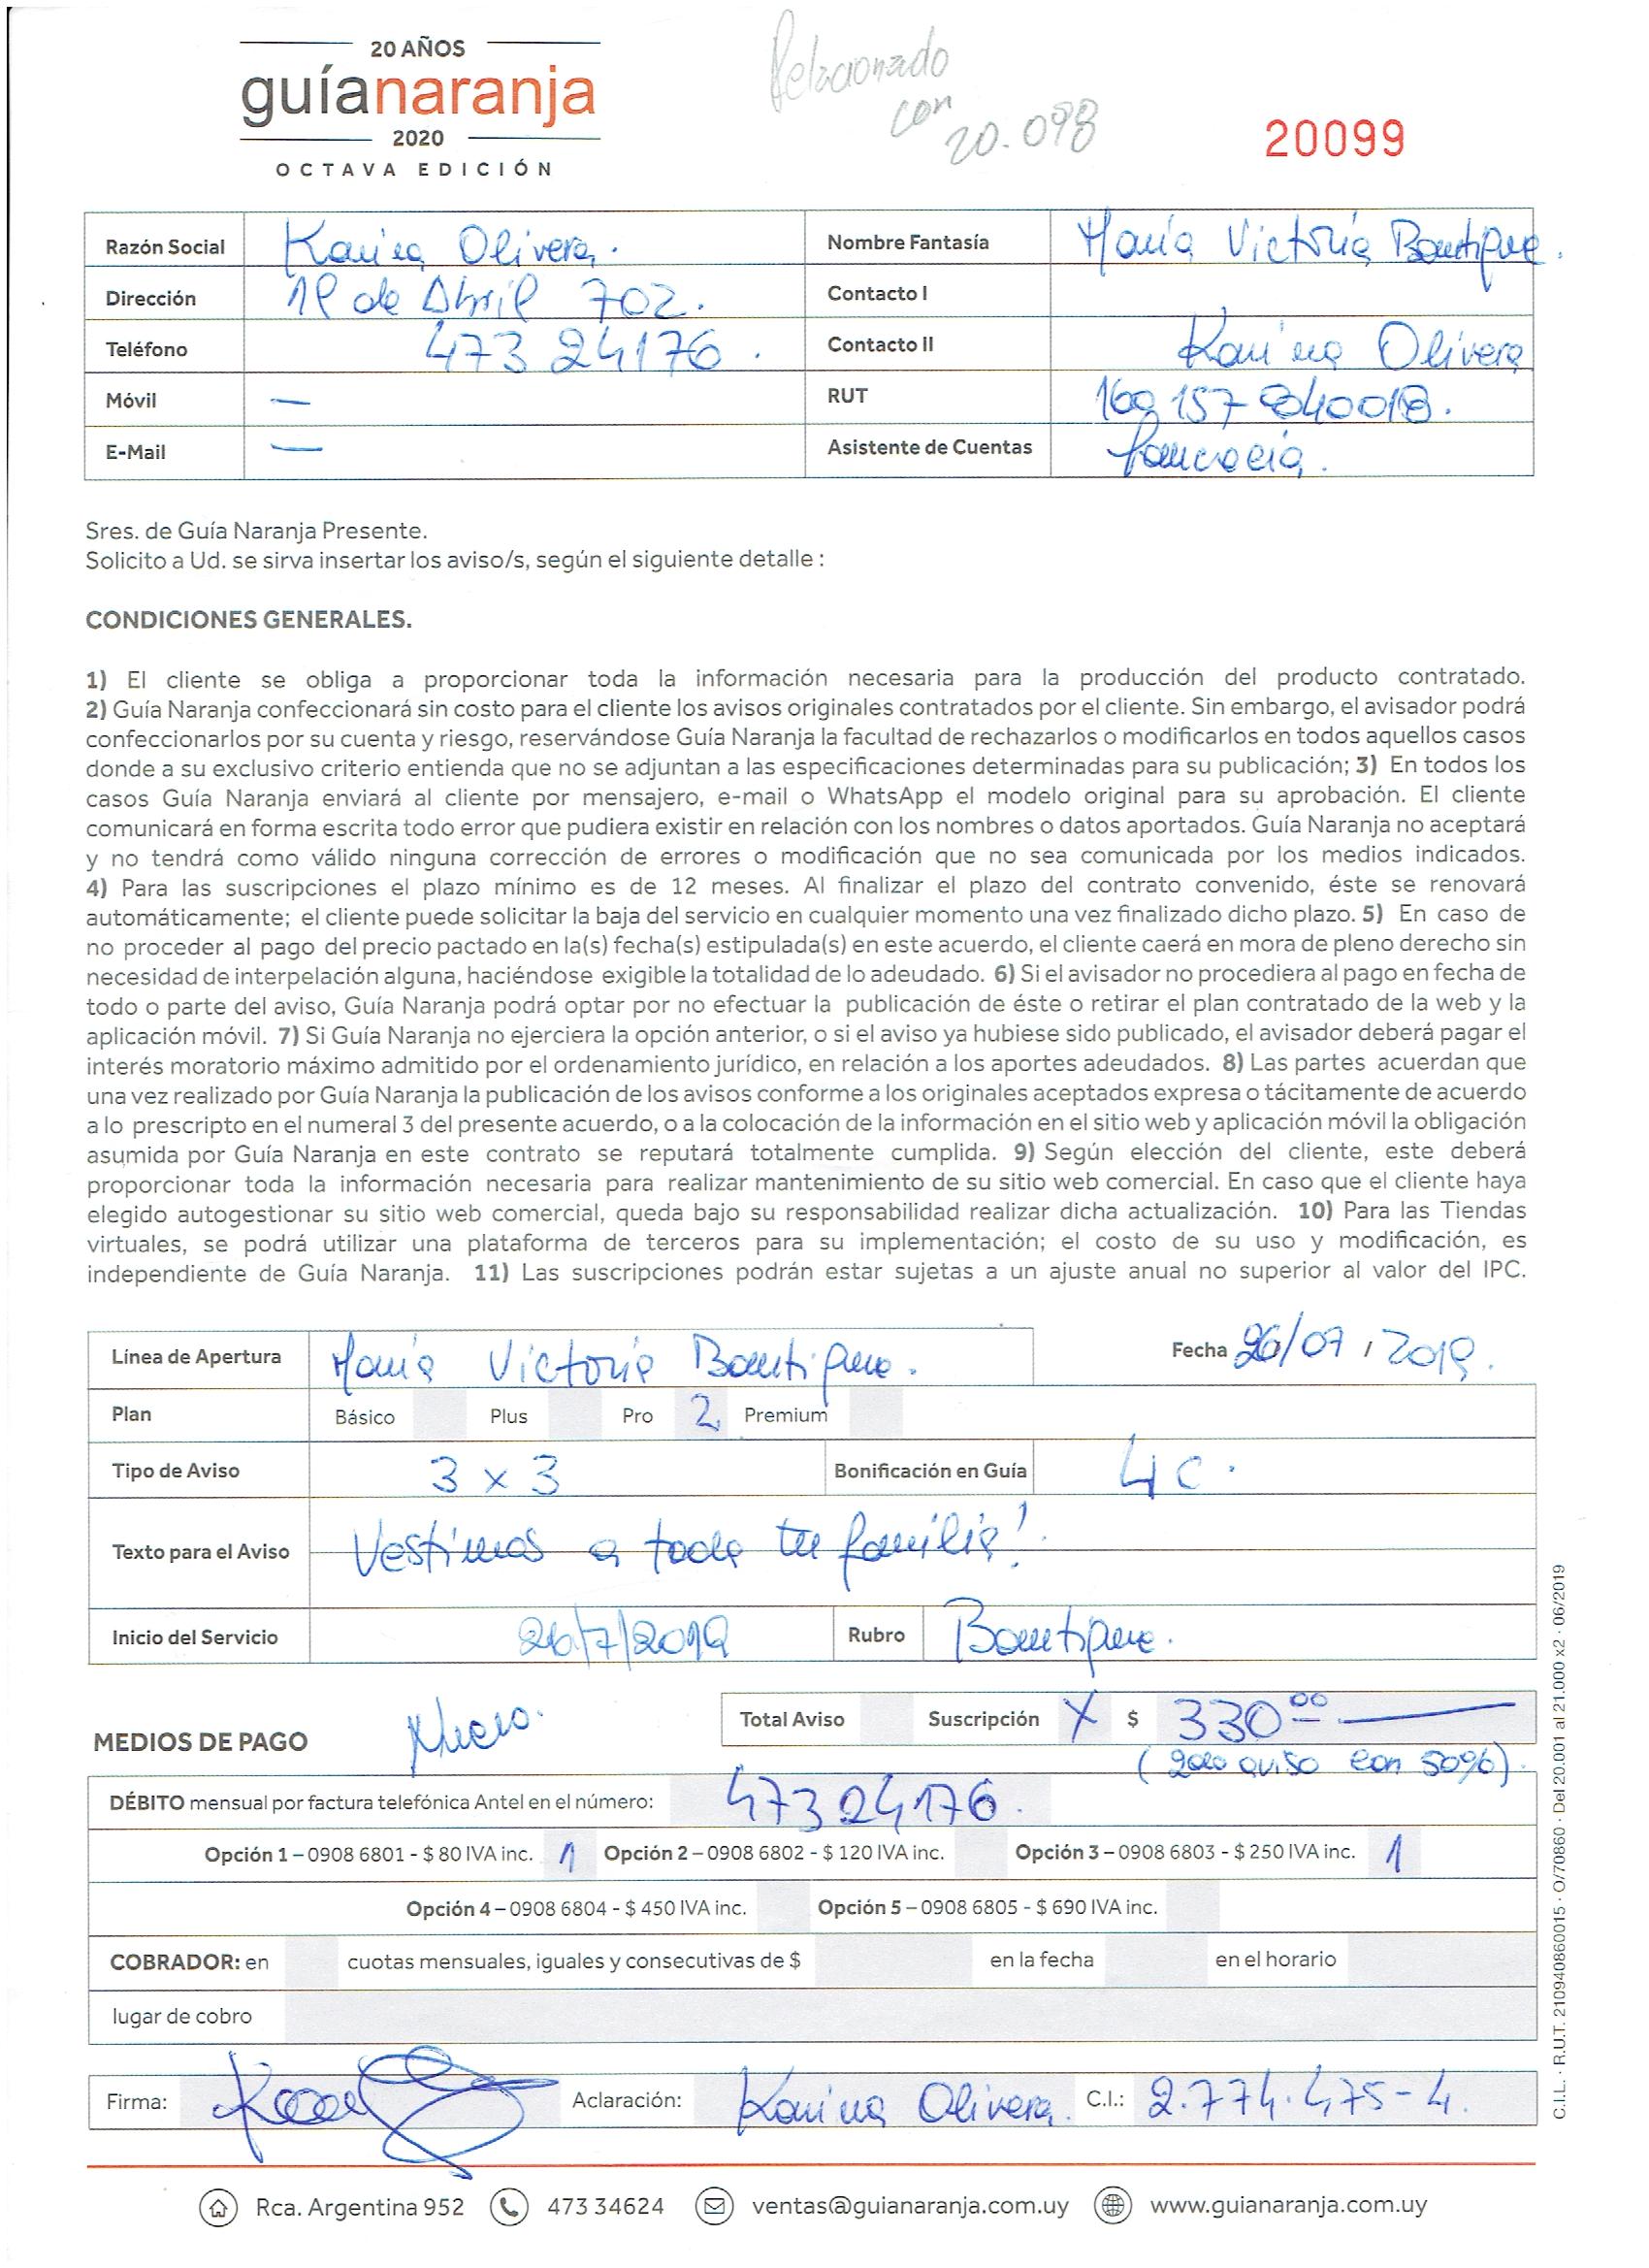 20 AÑOS
guíanaranja
2020
OCTAVA EDICIÓN
Relacionado
con
20.098
20099
Razón Social Karina Olivera. Nombre Fantasía María Victoria Boutique.
Dirección 19 de Abril 702. Contacto I
Teléfono 473 24176. Contacto II Karina Olivera
Móvil — RUT 160 157 840018.
E-Mail — Asistente de Cuentas
Sres. de Guía Naranja Presente.
Solicito a Ud. se sirva insertar los aviso/s, según el siguiente detalle :
CONDICIONES GENERALES.
1) El cliente se obliga a proporcionar toda la información necesaria para la producción del producto contratado.
2) Guía Naranja confeccionará sin costo para el cliente los avisos originales contratados por el cliente. Sin embargo, el avisador podrá
confeccionarlos por su cuenta y riesgo, reservándose Guía Naranja la facultad de rechazarlos o modificarlos en todos aquellos casos
donde a su exclusivo criterio entienda que no se adjuntan a las especificaciones determinadas para su publicación; 3) En todos los
casos Guía Naranja enviará al cliente por mensajero, e-mail o WhatsApp el modelo original para su aprobación. El cliente
comunicará en forma escrita todo error que pudiera existir en relación con los nombres o datos aportados. Guía Naranja no aceptará
y no tendrá como válido ninguna corrección de errores o modificación que no sea comunicada por los medios indicados.
4) Para las suscripciones el plazo mínimo es de 12 meses. Al finalizar el plazo del contrato convenido, éste se renovará
automáticamente; el cliente puede solicitar la baja del servicio en cualquier momento una vez finalizado dicho plazo. 5) En caso de
no proceder al pago del precio pactado en la(s) fecha(s) estipulada(s) en este acuerdo, el cliente caerá en mora de pleno derecho sin
necesidad de interpelación alguna, haciéndose exigible la totalidad de lo adeudado. 6) Si el avisador no procediera al pago en fecha de
todo o parte del aviso, Guía Naranja podrá optar por no efectuar la publicación de éste o retirar el plan contratado de la web y la
aplicación móvil. 7) Si Guía Naranja no ejerciera la opción anterior, o si el aviso ya hubiese sido publicado, el avisador deberá pagar el
interés moratorio máximo admitido por el ordenamiento jurídico, en relación a los aportes adeudados. 8) Las partes acuerdan que
una vez realizado por Guía Naranja la publicación de los avisos conforme a los originales aceptados expresa o tácitamente de acuerdo
a lo prescripto en el numeral 3 del presente acuerdo, o a la colocación de la información en el sitio web y aplicación móvil la obligación
asumida por Guía Naranja en este contrato se reputará totalmente cumplida. 9) Según elección del cliente, este deberá
proporcionar toda la información necesaria para realizar mantenimiento de su sitio web comercial. En caso que el cliente haya
elegido autogestionar su sitio web comercial, queda bajo su responsabilidad realizar dicha actualización. 10) Para las Tiendas
virtuales, se podrá utilizar una plataforma de terceros para su implementación; el costo de su uso y modificación, es
independiente de Guía Naranja. 11) Las suscripciones podrán estar sujetas a un ajuste anual no superior al valor del IPC.
Línea de Apertura María Victoria Boutique. Fecha 26/07 / 2019.
Plan Básico Plus Pro 2 Premium
Tipo de Aviso 3 x 3 Bonificación en Guía 4 C.
Texto para el Aviso Vestimos a toda tu familia!
Inicio del Servicio 26/7/2019 Rubro Boutique.
Total Aviso Suscripción X $ 330 00
MEDIOS DE PAGO
(2do aviso con 50%).
DÉBITO mensual por factura telefónica Antel en el número: 47324176.
Opción 1 – 0908 6801 - $ 80 IVA inc. 1 Opción 2 – 0908 6802 - $ 120 IVA inc. Opción 3 – 0908 6803 - $ 250 IVA inc. 1
Opción 4 – 0908 6804 - $ 450 IVA inc. Opción 5 – 0908 6805 - $ 690 IVA inc.
COBRADOR: en cuotas mensuales, iguales y consecutivas de $ en la fecha en el horario
lugar de cobro
Firma: Aclaración: Karina Olivera. C.I.: 2.774.475-4.
Rca. Argentina 952 473 34624 ventas@guianaranja.com.uy www.guianaranja.com.uy
C.I.L. · R.U.T. 210940860015 · O/70860 · Del 20.001 al 21.000 x2 · 06/2019